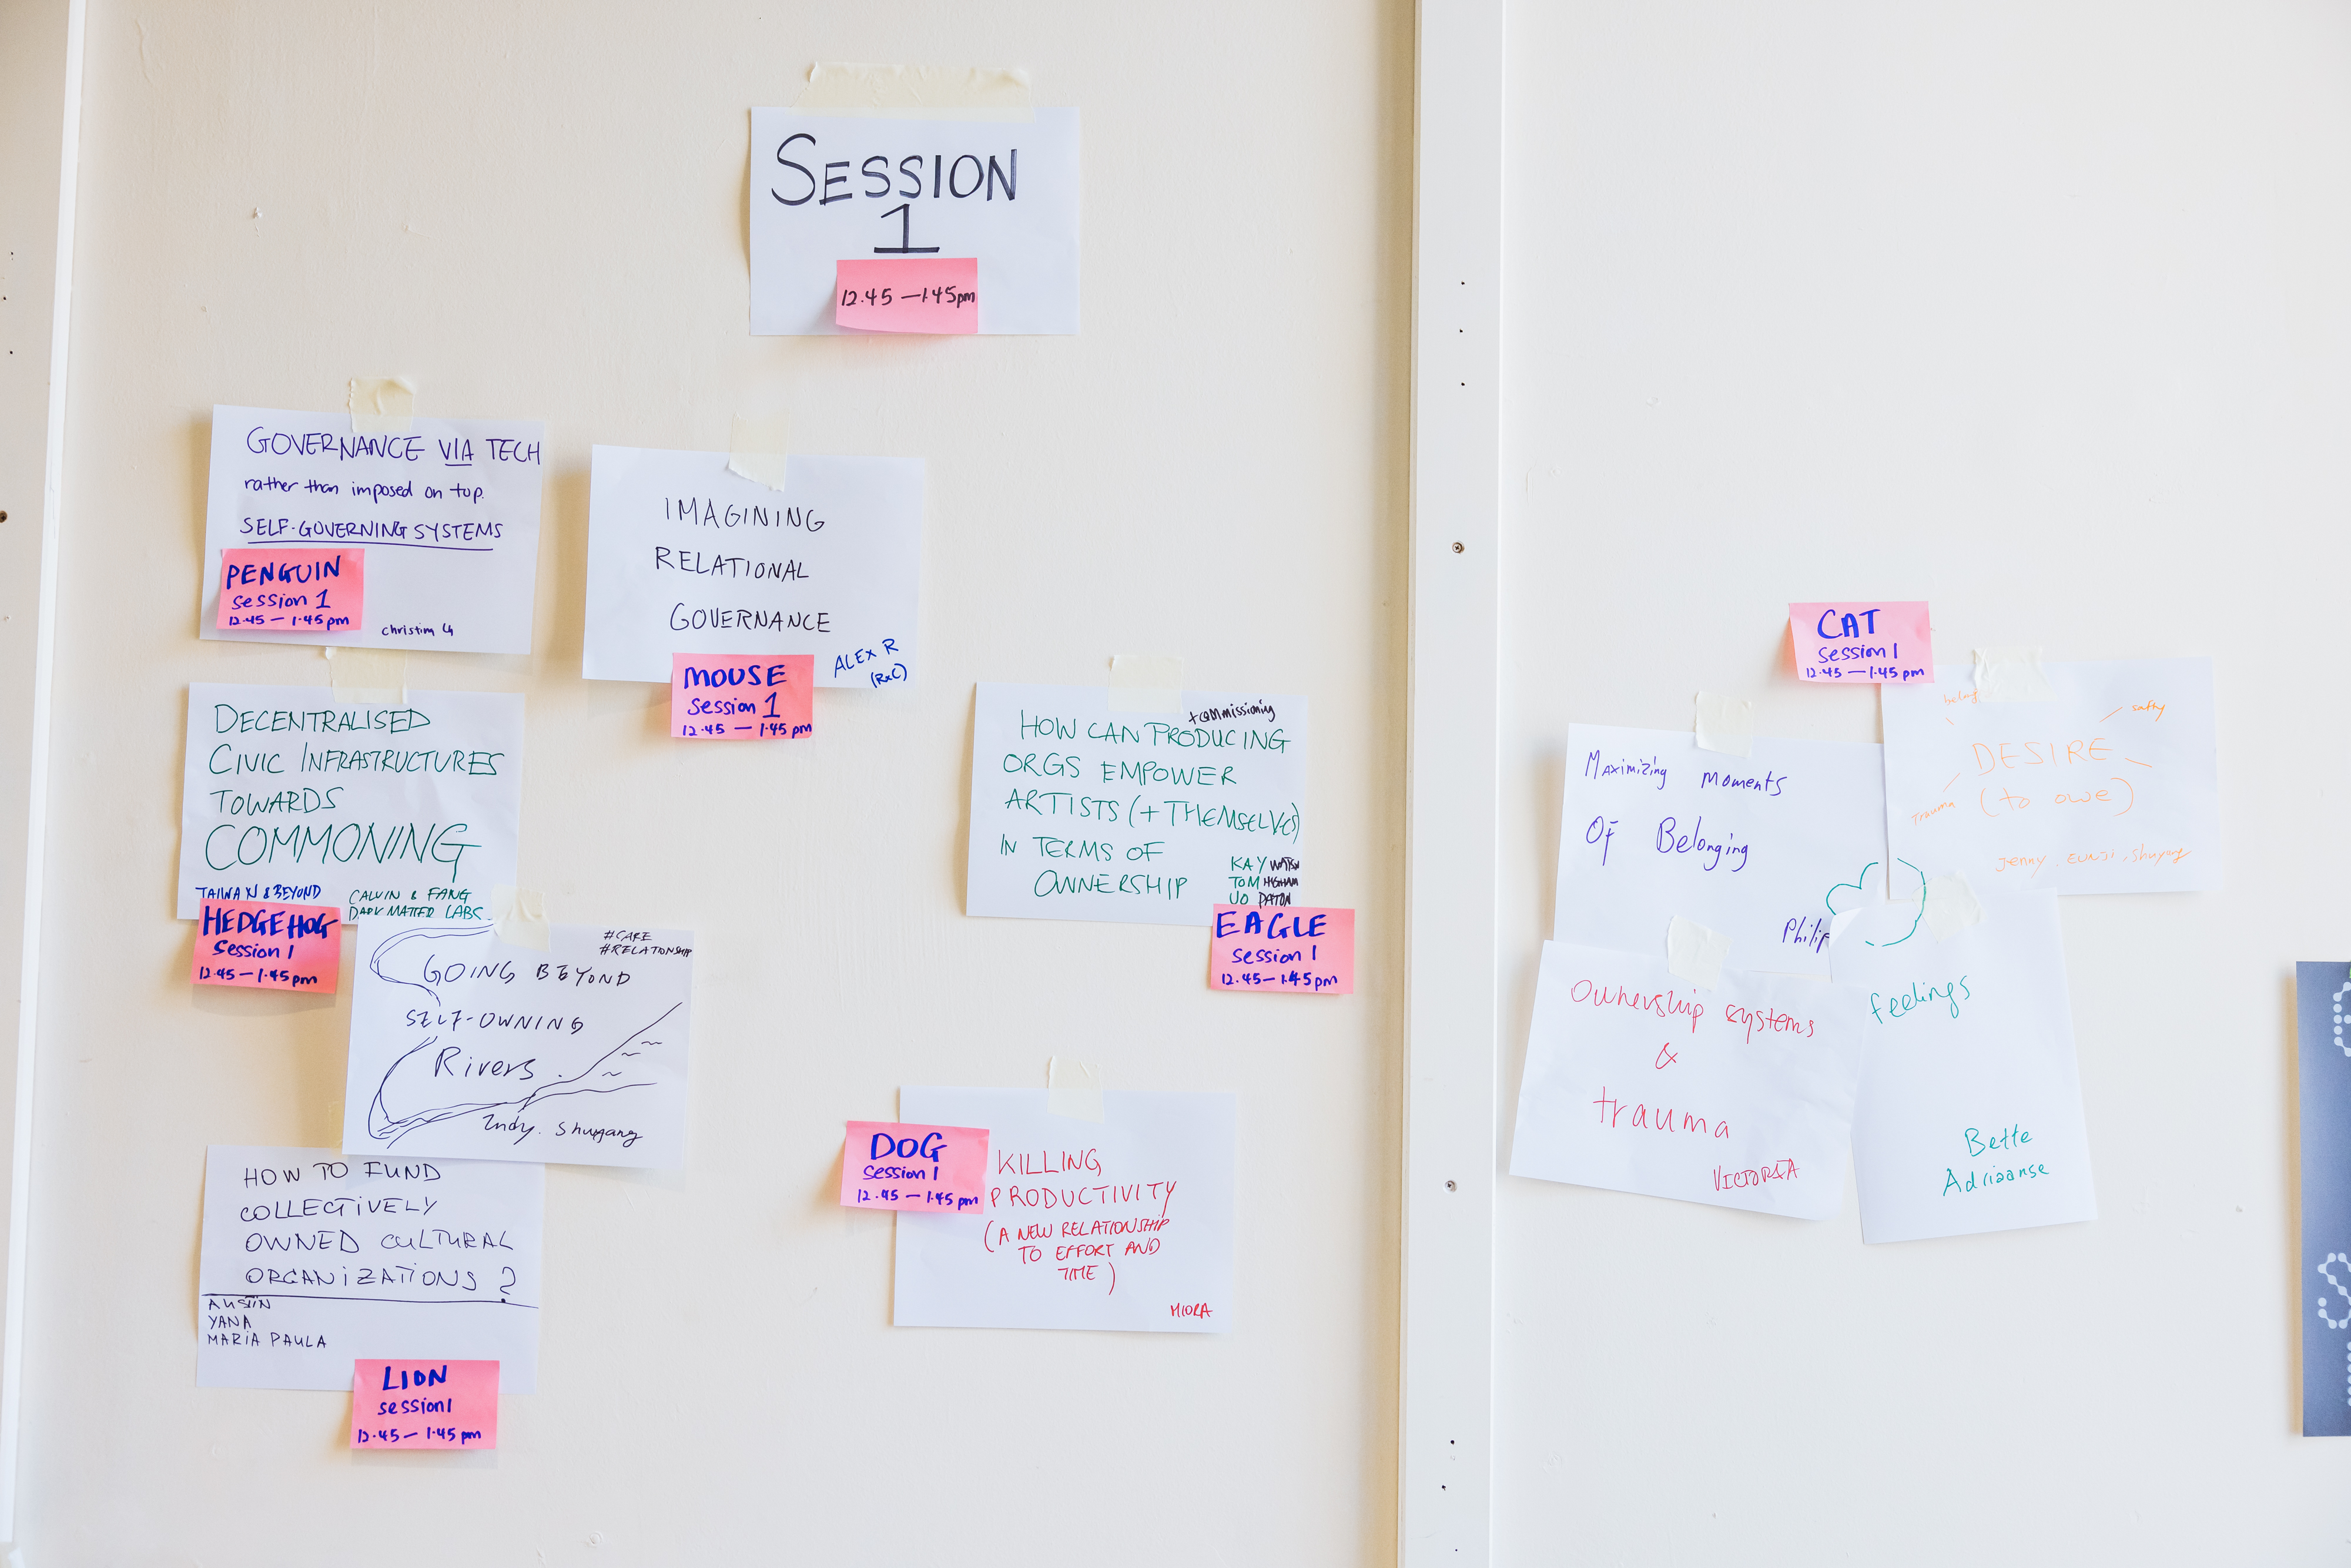 SESSION
1
12.45 — 1.45pm
GOVERNANCE VIA TECH
rather than imposed on top.
SELF-GOVERNING SYSTEMS
PENGUIN
Session 1
12.45 — 1.45pm
IMAGINING
RELATIONAL
GOVERNANCE
ALEX R
(RxC)
MOUSE
Session 1
12.45 — 1.45pm
DECENTRALISED
CIVIC INFRASTRUCTURES
TOWARDS
COMMONING
TAIWAN & BEYOND
CALVIN & FANG
DARK MATTER LABS
HEDGEHOG
Session 1
12.45 — 1.45pm
+commissioning
HOW CAN PRODUCING
ORGS EMPOWER
ARTISTS (+ THEMSELVES)
IN TERMS OF
OWNERSHIP
KAY
TOM HIGHAM
JO PATON
EAGLE
Session 1
12.45 — 1.45pm
#CARE
#RELATIONSHIP
GOING BEYOND
SELF-OWNING
Rivers.
Indy. Shuyang
HOW TO FUND
COLLECTIVELY
OWNED CULTURAL
ORGANIZATIONS?
AUSTIN
YANA
MARIA PAULA
LION
session 1
12.45 — 1.45 pm
DOG
Session 1
12.45 — 1.45 pm
KILLING
PRODUCTIVITY
(A NEW RELATIONSHIP
TO EFFORT AND
TIME)
MIORA
CAT
Session 1
12.45 — 1.45 pm
Maximizing Moments
Of Belonging
Philip
DESIRE
(to owe)
trauma
Jenny. EUNJI. Shuyang
Ownership systems
&
trauma
VICTORIA
feelings
Bette
Adriaanse